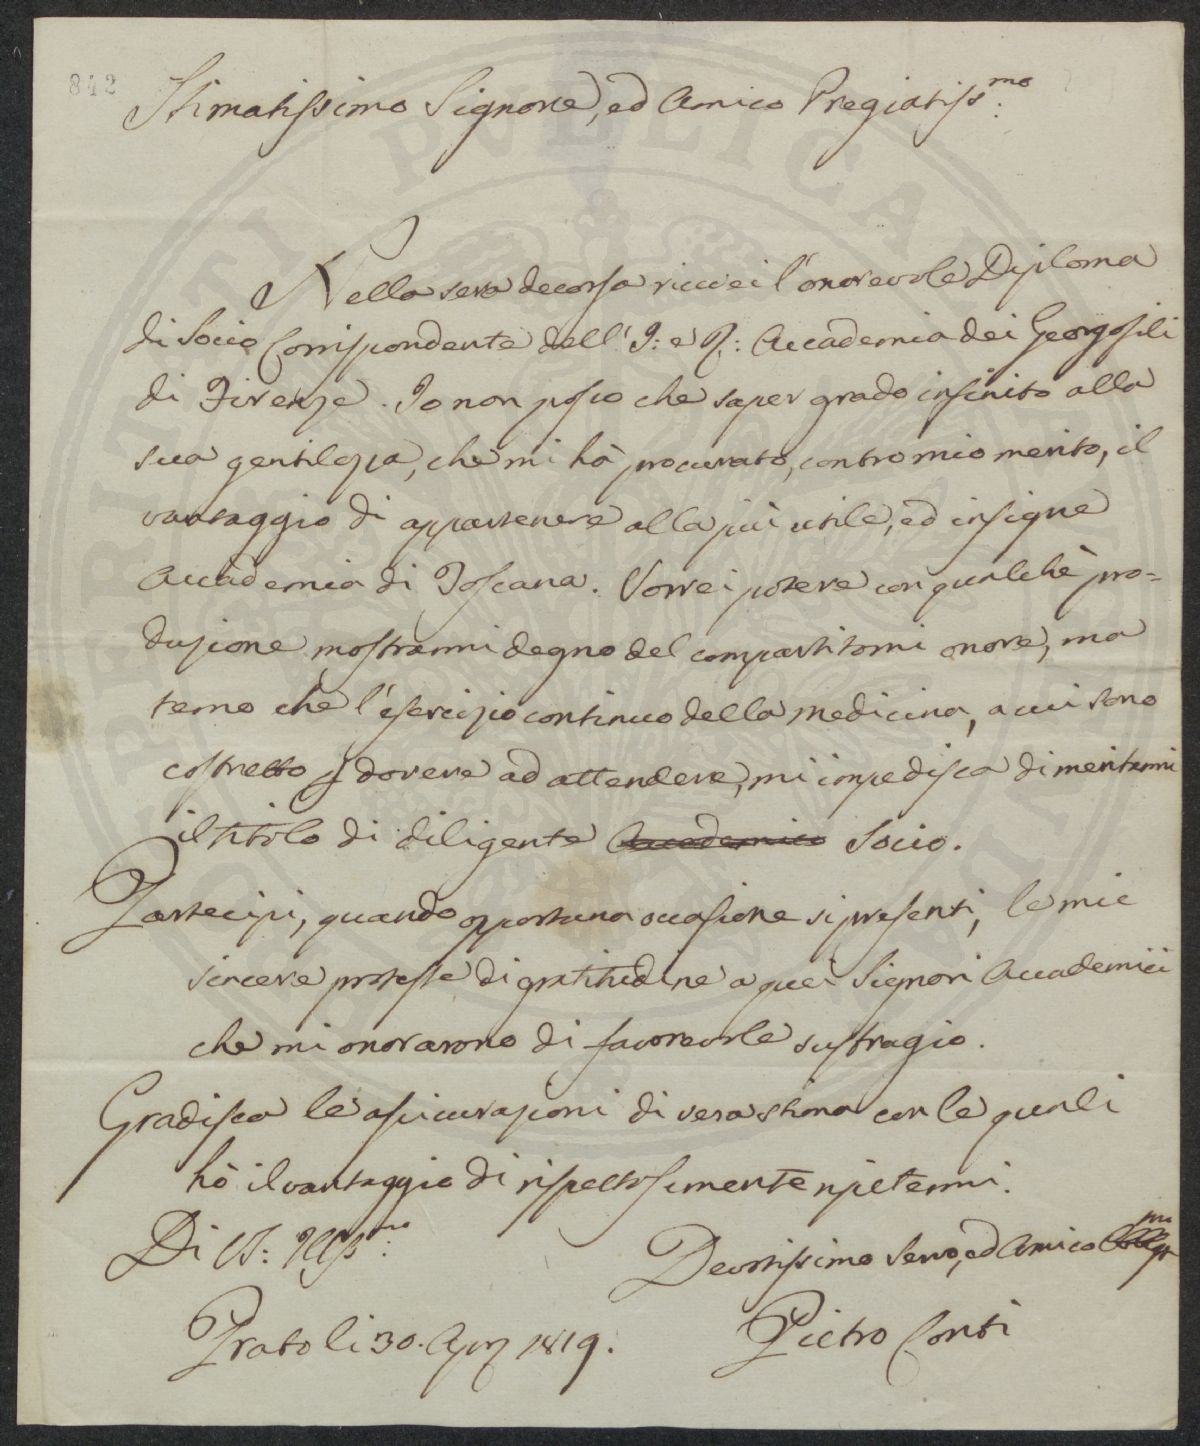 842
Stimatissimo Signore, ed Amico Pregiatiss.mo
Nella sera decorsa ricevei l'onorevole Diploma
di Socio Corrispondente dell' I: e R: Accademia dei Georgofili
di Firenze. Io non posso che saper grado infinito alla
sua gentilezza, che mi hà procurato, contro mio merito, il
vantaggio di appartenere alla più utile, ed insigne
Accademia di Toscana. Vorrei potere con qualchè pro=
duzione mostrarmi degno del compartitomi onore, ma
temo che l'esercizio continuo della medicina, a cui sono
costretto p dovere ad attendere, mi impedisca di meritarmi
il titolo di diligente Accademico Socio.
Partecipi, quando opportuna occasione si presenti, le mie
sincere proteste di gratitudine a quei Signori Accademici
che mi onorarono di favorevole suffragio.
Gradisca le assicurazioni di vera stima con le quali
hò il vantaggio di rispettosamente ripetermi.
Di VS: Illss.ma
Devotissimo Servo, ed Amico
Prato li 30. 1819.
Pietro Conti
PUBLICAE